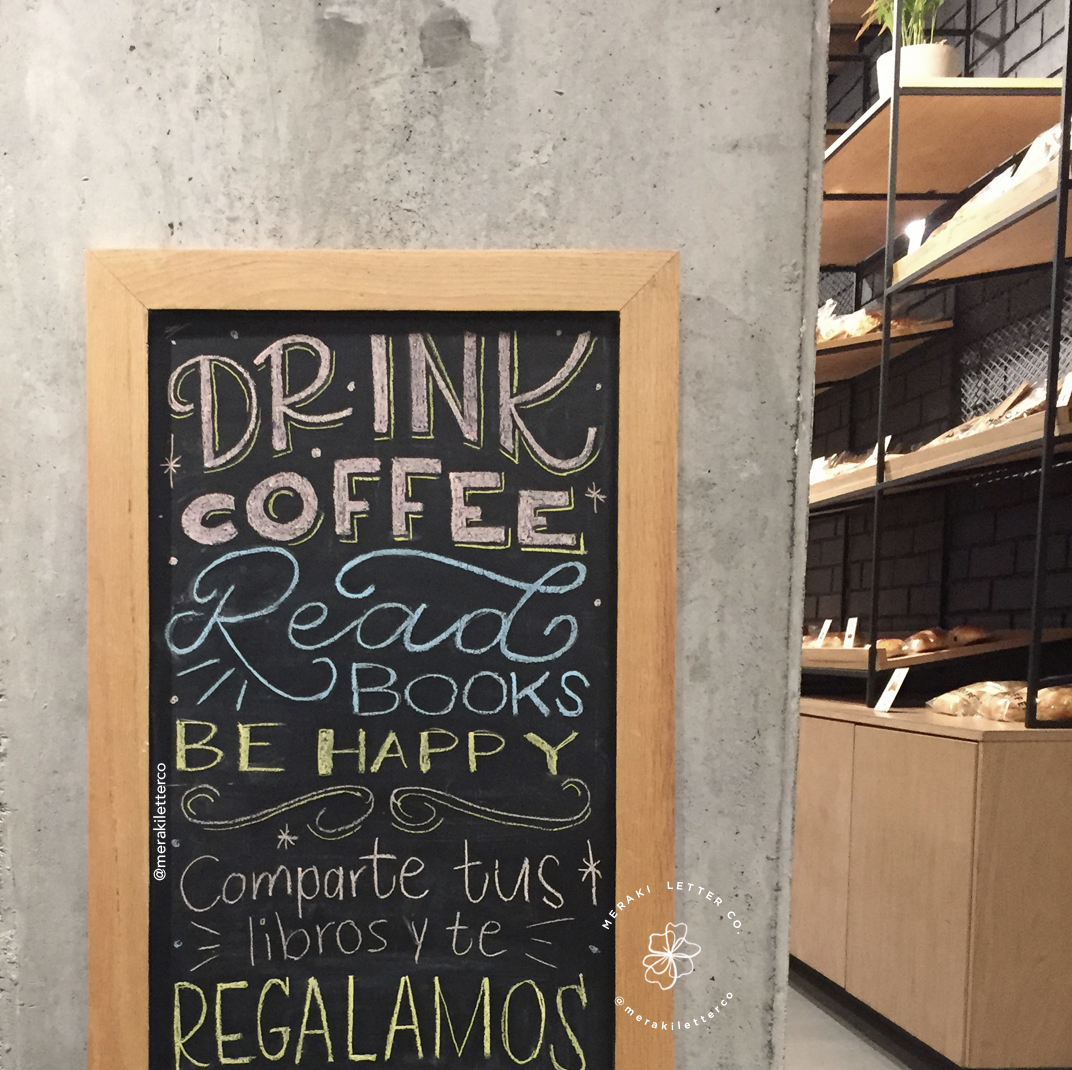 DRINK
COFFEE
Read
BOOKS
BE HAPPY
Comparte tus
libros y te
REGALAMOS
@merakiletterco
MERAKI LETTER CO.
@merakiletterco